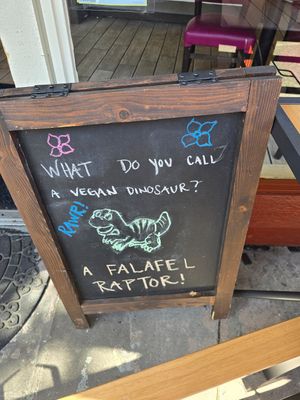 WHAT DO YOU CALL
A VEGAN DINOSAUR?
RAWR!
A FALAFEL
RAPTOR!